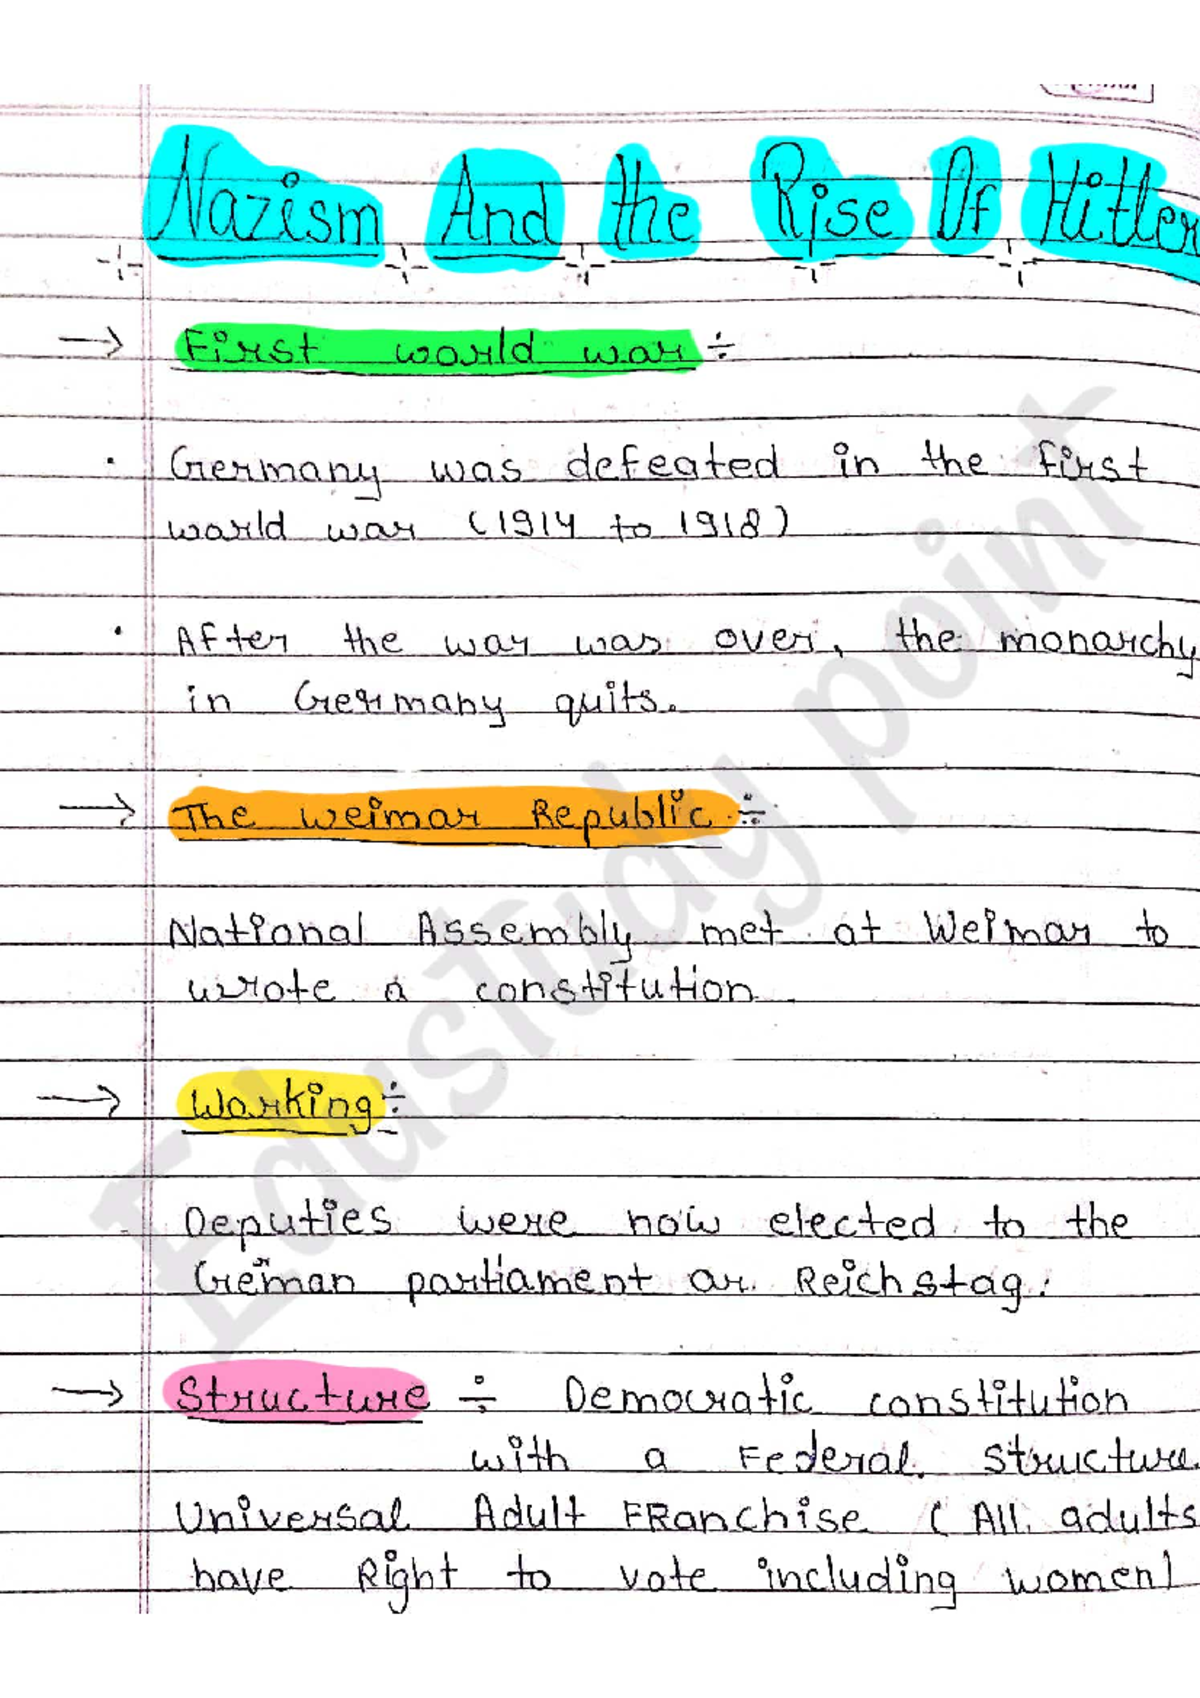 Nazism And the Rise Of Hitler
→ First world war ÷
• Germany was defeated in the first
world war (1914 to 1918)
• After the war was over, the monarchy
in Germany quits.
→ The Weimar Republic ÷
National Assembly met at Weimar to
wrote a constitution
→ Working ÷
Deputies were now elected to the
German parliament or Reichstag.
→ Structure ÷ Democratic constitution
with a Federal structure
Universal Adult FRanchise (All adults
have Right to vote including women)
Edustudy point